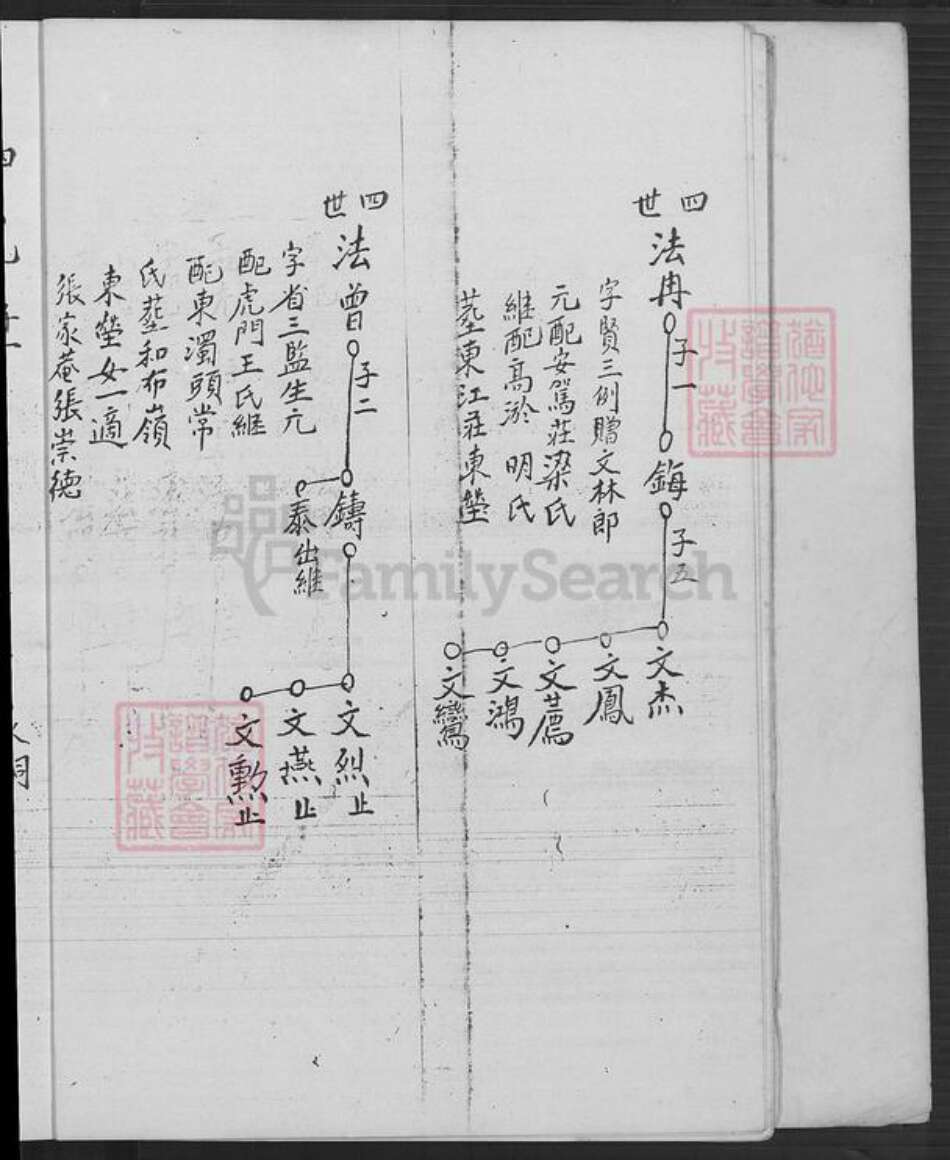 四世
法冉
子一
字賢三例贈文林郎
元配安駕莊梁氏
継配高淤明氏
塟東江莊東塋
鋂
子五
文杰
文鳳
文薦
文鴻
文鸞
四世
法曾
子二
字省三監生元
配虎門王氏継
配東濁頭常
氏塟和布嶺
東塋女一適
張家菴張崇德
鑄
泰出継
文烈止
文燕止
文勲止
FamilySearch